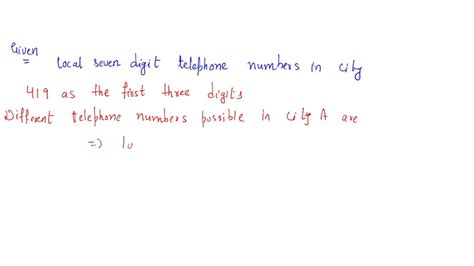 Given
= local seven digit telephone numbers in city
419 as the first three digits
Different telephone numbers possible in city A are
=) 10